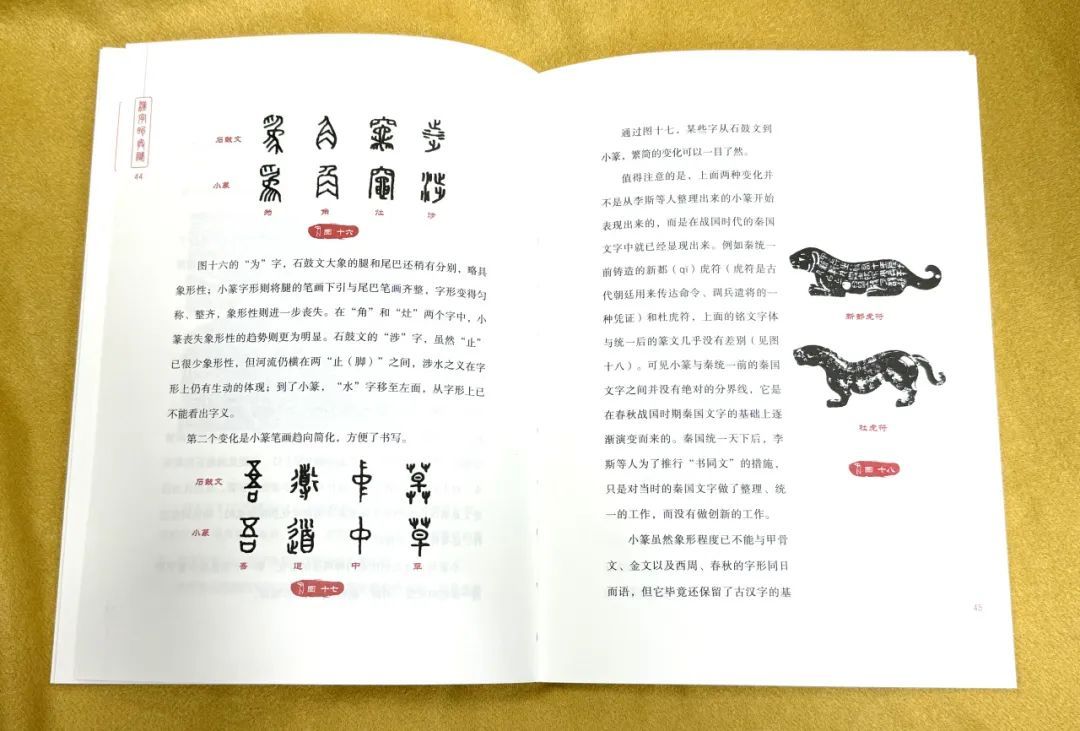 44
石鼓文
小篆
为 角 灶 涉
图十六
图十六的“为”字，石鼓文大象的腿和尾巴还稍有分别，略具
象形性；小篆字形则将腿的笔画下引与尾巴笔画齐整，字形变得匀
称、整齐，象形性则进一步丧失。在“角”和“灶”两个字中，小
篆丧失象形性的趋势则更为明显。石鼓文的“涉”字，虽然“止”
已很少象形性，但河流仍横在两“止（脚）”之间，涉水之义在字
形上仍有生动的体现；到了小篆，“水”字移至左面，从字形上已
不能看出字义。
第二个变化是小篆笔画趋向简化，方便了书写。
石鼓文
小篆
吾 道 中 草
图十七
通过图十七，某些字从石鼓文到
小篆，繁简的变化可以一目了然。
值得注意的是，上面两种变化并
不是从李斯等人整理出来的小篆开始
表现出来的，而是在战国时代的秦国
文字中就已经显现出来。例如秦统一
前铸造的新郪（qī）虎符（虎符是古
代朝廷用来传达命令、调兵遣将的一
种凭证）和杜虎符，上面的铭文字体
与统一后的篆文几乎没有差别（见图
十八）。可见小篆与秦统一前的秦国
文字之间并没有绝对的分界线，它是
在春秋战国时期秦国文字的基础上逐
渐演变而来的。秦国统一天下后，李
斯等人为了推行“书同文”的措施，
只是对当时的秦国文字做了整理、统
一的工作，而没有做创新的工作。
小篆虽然象形程度已不能与甲骨
文、金文以及西周、春秋的字形同日
而语，但它毕竟还保留了古汉字的基
新郪虎符
杜虎符
图十八
45